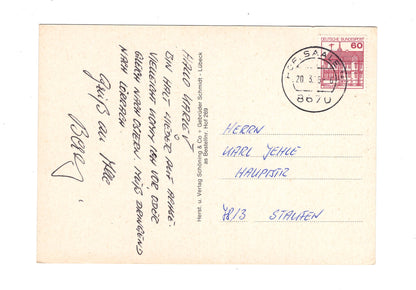 HALLO KARLE!
BIN HALT WIEDER AUF ACHSE.
VIELLEICHT KOMM ICH VOR ODER
GLEICH NACH OSTERN. MUß DRINGEND
NACH LÖRRACH
Gruß an Alle
Herst. u. Verlag Schöning & Co + Gebrüder Schmidt - Lübeck
as Bestellnr. Hof 269
DEUTSCHE BUNDESPOST
60
HOF, SAALE
20.3.
8670
HERRN
KARL JEHLE
HAUPTSTR
7813 STAUFEN